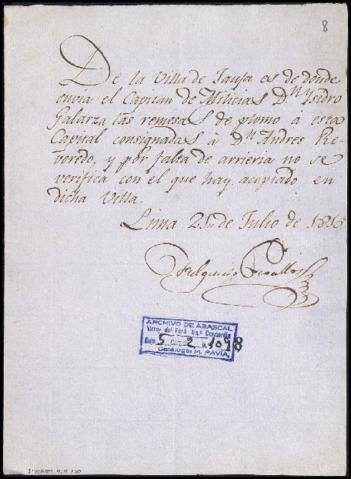 8
De la Villa de Jauja es de donde
envia el Capitan de Milicias Dn Ysidro
Galarza las remesas de plomo á esta
Capital consignadas á Dn Andres Re-
voredo, y por falta de arrieria no se
verifica con el que hay acopiado en
dicha Villa.
Lima 21 de Julio de
ARCHIVO DE ABASCAL
Virrey del Perú
5 2 1098
Catálogo: M. PAVÍA.